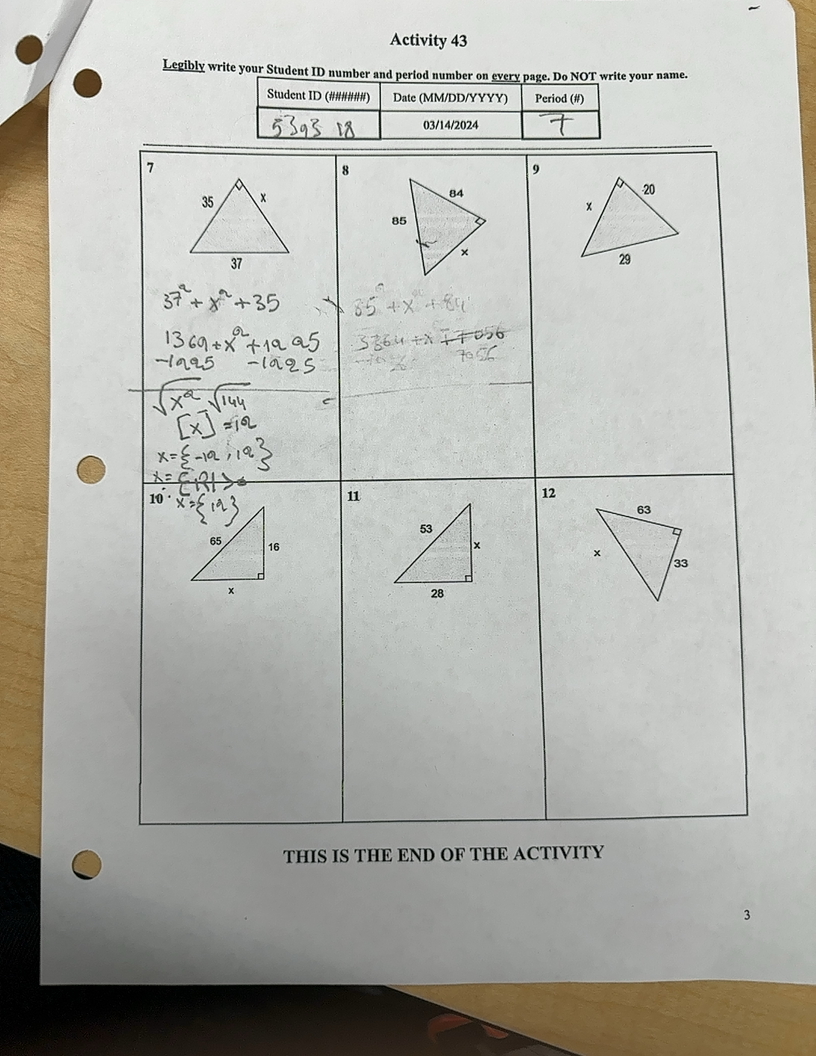 Activity 43
Legibly write your Student ID number and period number on every page. Do NOT write your name.
Student ID (######) Date (MM/DD/YYYY) Period (#)
5393 18 03/14/2024 7
7
35 x
37
37² + x² + 35
1369 + x² + 1225
-1225 -1225
√x² √144
[x] = 12
x = {-12, 12}
x = {12}
8
84
85
x
85² + x² + 84
7056
7056
9
20
x
29
10
65
16
x
11
53
x
28
12
63
x
33
THIS IS THE END OF THE ACTIVITY
3